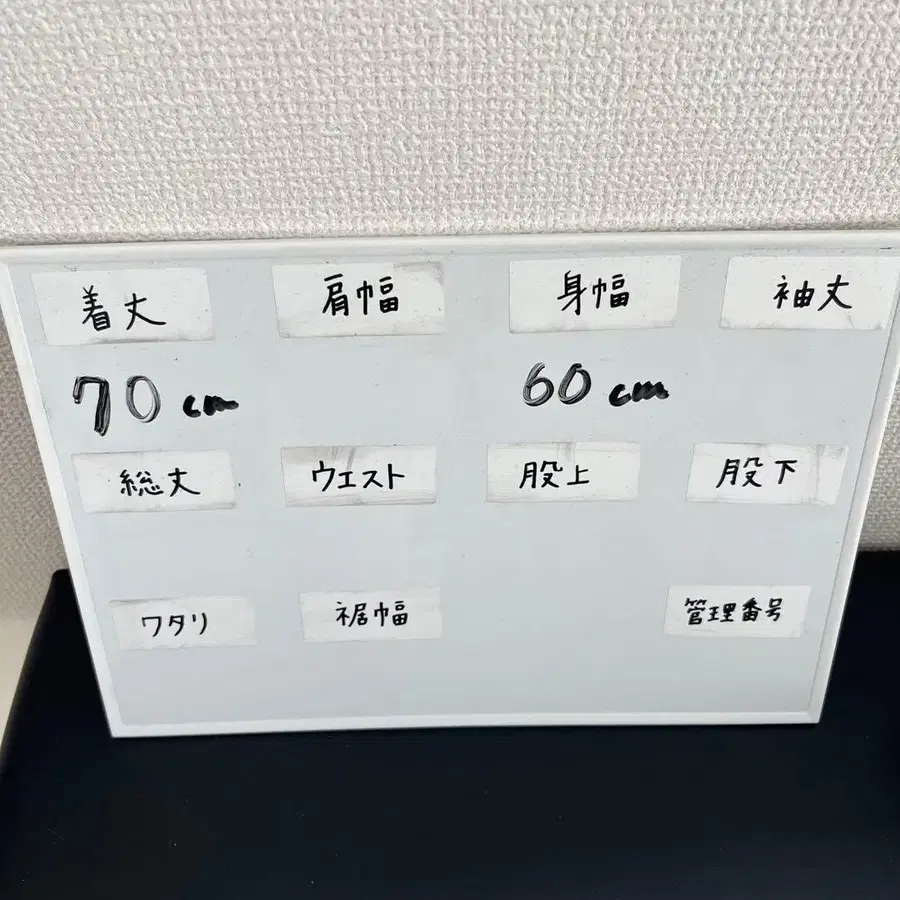 着丈 肩幅 身幅 袖丈
70cm 60cm
総丈 ウエスト 股上 股下
ワタリ 裾幅 管理番号